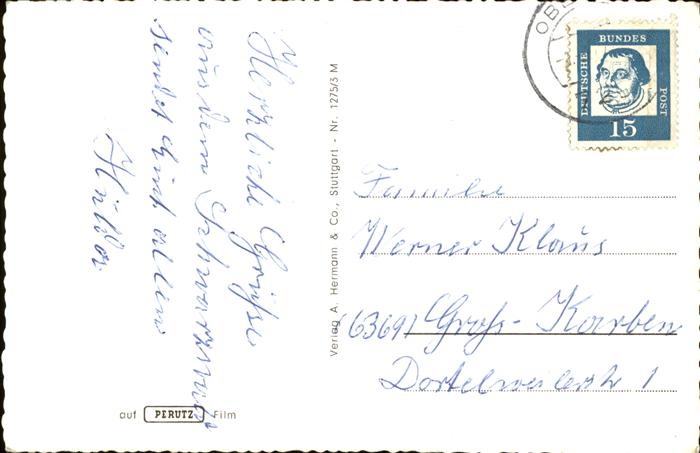 Herzliche Grüße
aus dem Schwarzwald
sendet Euch allen
auf PERUTZ Film
Verlag A. Hermann & Co., Stuttgart - Nr. 1275/3 M
DEUTSCHE BUNDES POST
15
Familie
Werner Klaus
(6369) Groß-Karben
Dortelweilerstr 1